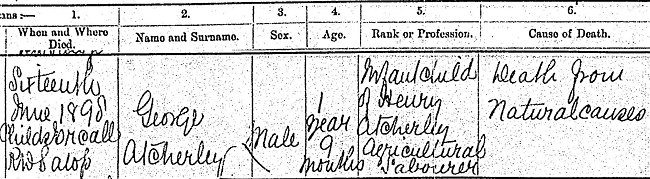 ns:— 1. 2. 3. 4. 5. 6.
When and Where Died. Name and Surname. Sex. Age. Rank or Profession. Cause of Death.
Sixteenth
June 1898
R.D. Salop
George
Atcherley
Male
1
year
9
months
Infant child
of Henry
Atcherley
Agricultural
Labourer
Death from
Natural causes